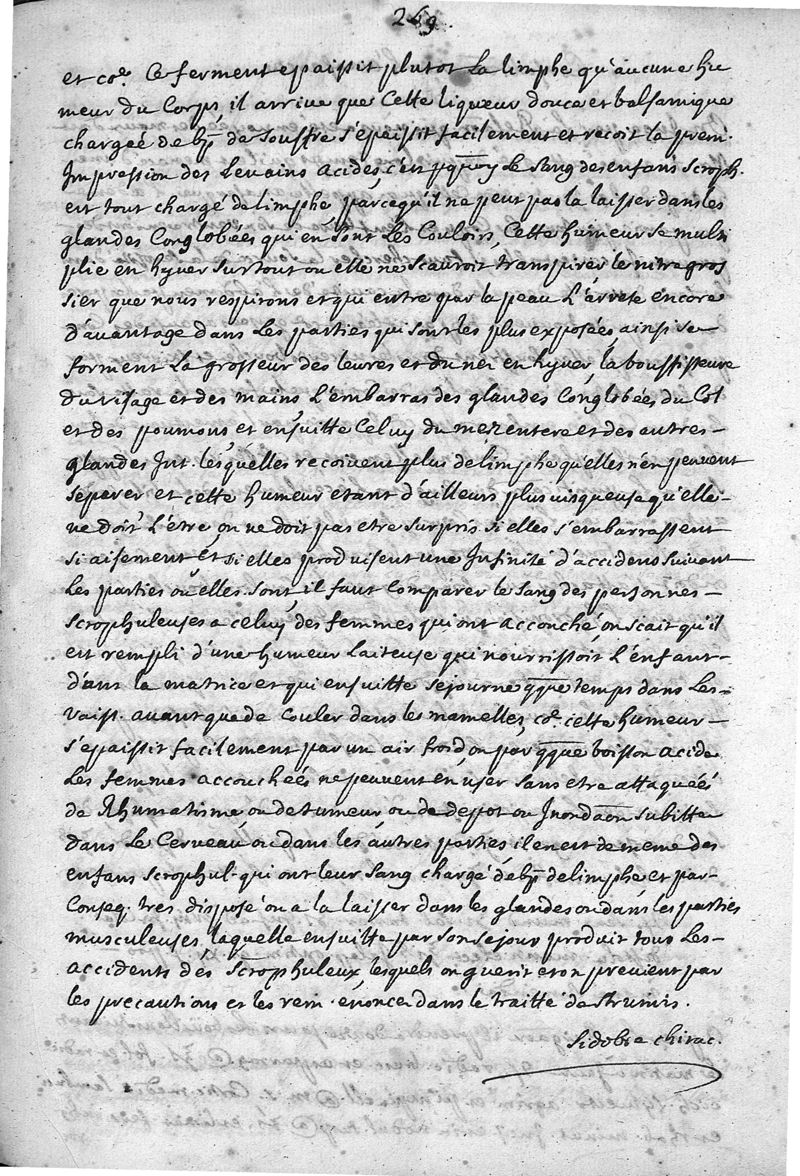 249.
et co.e Ce ferment epaissit plutot La limphe qu'aucune hu
meur du Corps, il arrive que Cette liqueur douce et balsamique
chargée de bp de souffre s'epaissit facilement et recoit la prem.
Impression des Levains acides, c'est pquoy Le sang des enfans scroph.
est tout chargé de limphe parcequ'il ne peut pas la laisser dans les
glandes Conglobées qui en sont Les Couloirs, Cette humeur se multi
plie en hyver surtout ou elle ne scauroit transpirer le nitre gros
sier que nous respirons et qui entre par la peau L'arrete encore
d'avantage dans Les parties qui sont les plus exposées, ainsi se
forment La grosseur des levres et du nez en hyver, la bouffisseure
du visage et des mains L'embarras des glandes Conglobées du Col
et des poumons, et ensuitte Celuy du mezentere et des autres
glandes Int. lesquelles recoivent plus de limphe qu'elles n'en peuvent
separer et cette humeur etant d'ailleurs plus visqueuse qu'elle
ne doit L'etre, on ne doit pas etre surpris si elles s'embarrassent
si aisement, Et si elles produisent une Infinité d'accidens suivant
Les parties ou elles sont, il faut Comparer le sang des personnes
scrophuleuses a celuy des femmes qui ont accouché, on scait qu'il
est rempli d'une humeur Laiteuse qui nourrissoit L'enfant
dans la matrice et qui ensuitte sejourne qque temps dans Les
vaiss. avant que de Couler dans les mamelles, co.e cette humeur
s'epaissit facilement par un air froid, ou par qque boisson acide
Les femmes accouchées ne peuvent en user sans etre attaquées
de Rhumatisme, ou de tumeur ou de depot ou Inondaon subitte
dans Le Cerveau ou dans les autres parties, il en est de meme des
enfans scrophul. qui ont leur sang chargé de bp de limphe, et par
Conseq. tres disposé ou a la laisser dans les glandes ou dans les parties
musculeuses, laquelle ensuitte par son sejour produit tous Les
accidents des Scrophuleux, lesquels on guerit et on previent par
les precautions et les rem. enoncé dans le traitté de strumis.
Sidobre chirac.